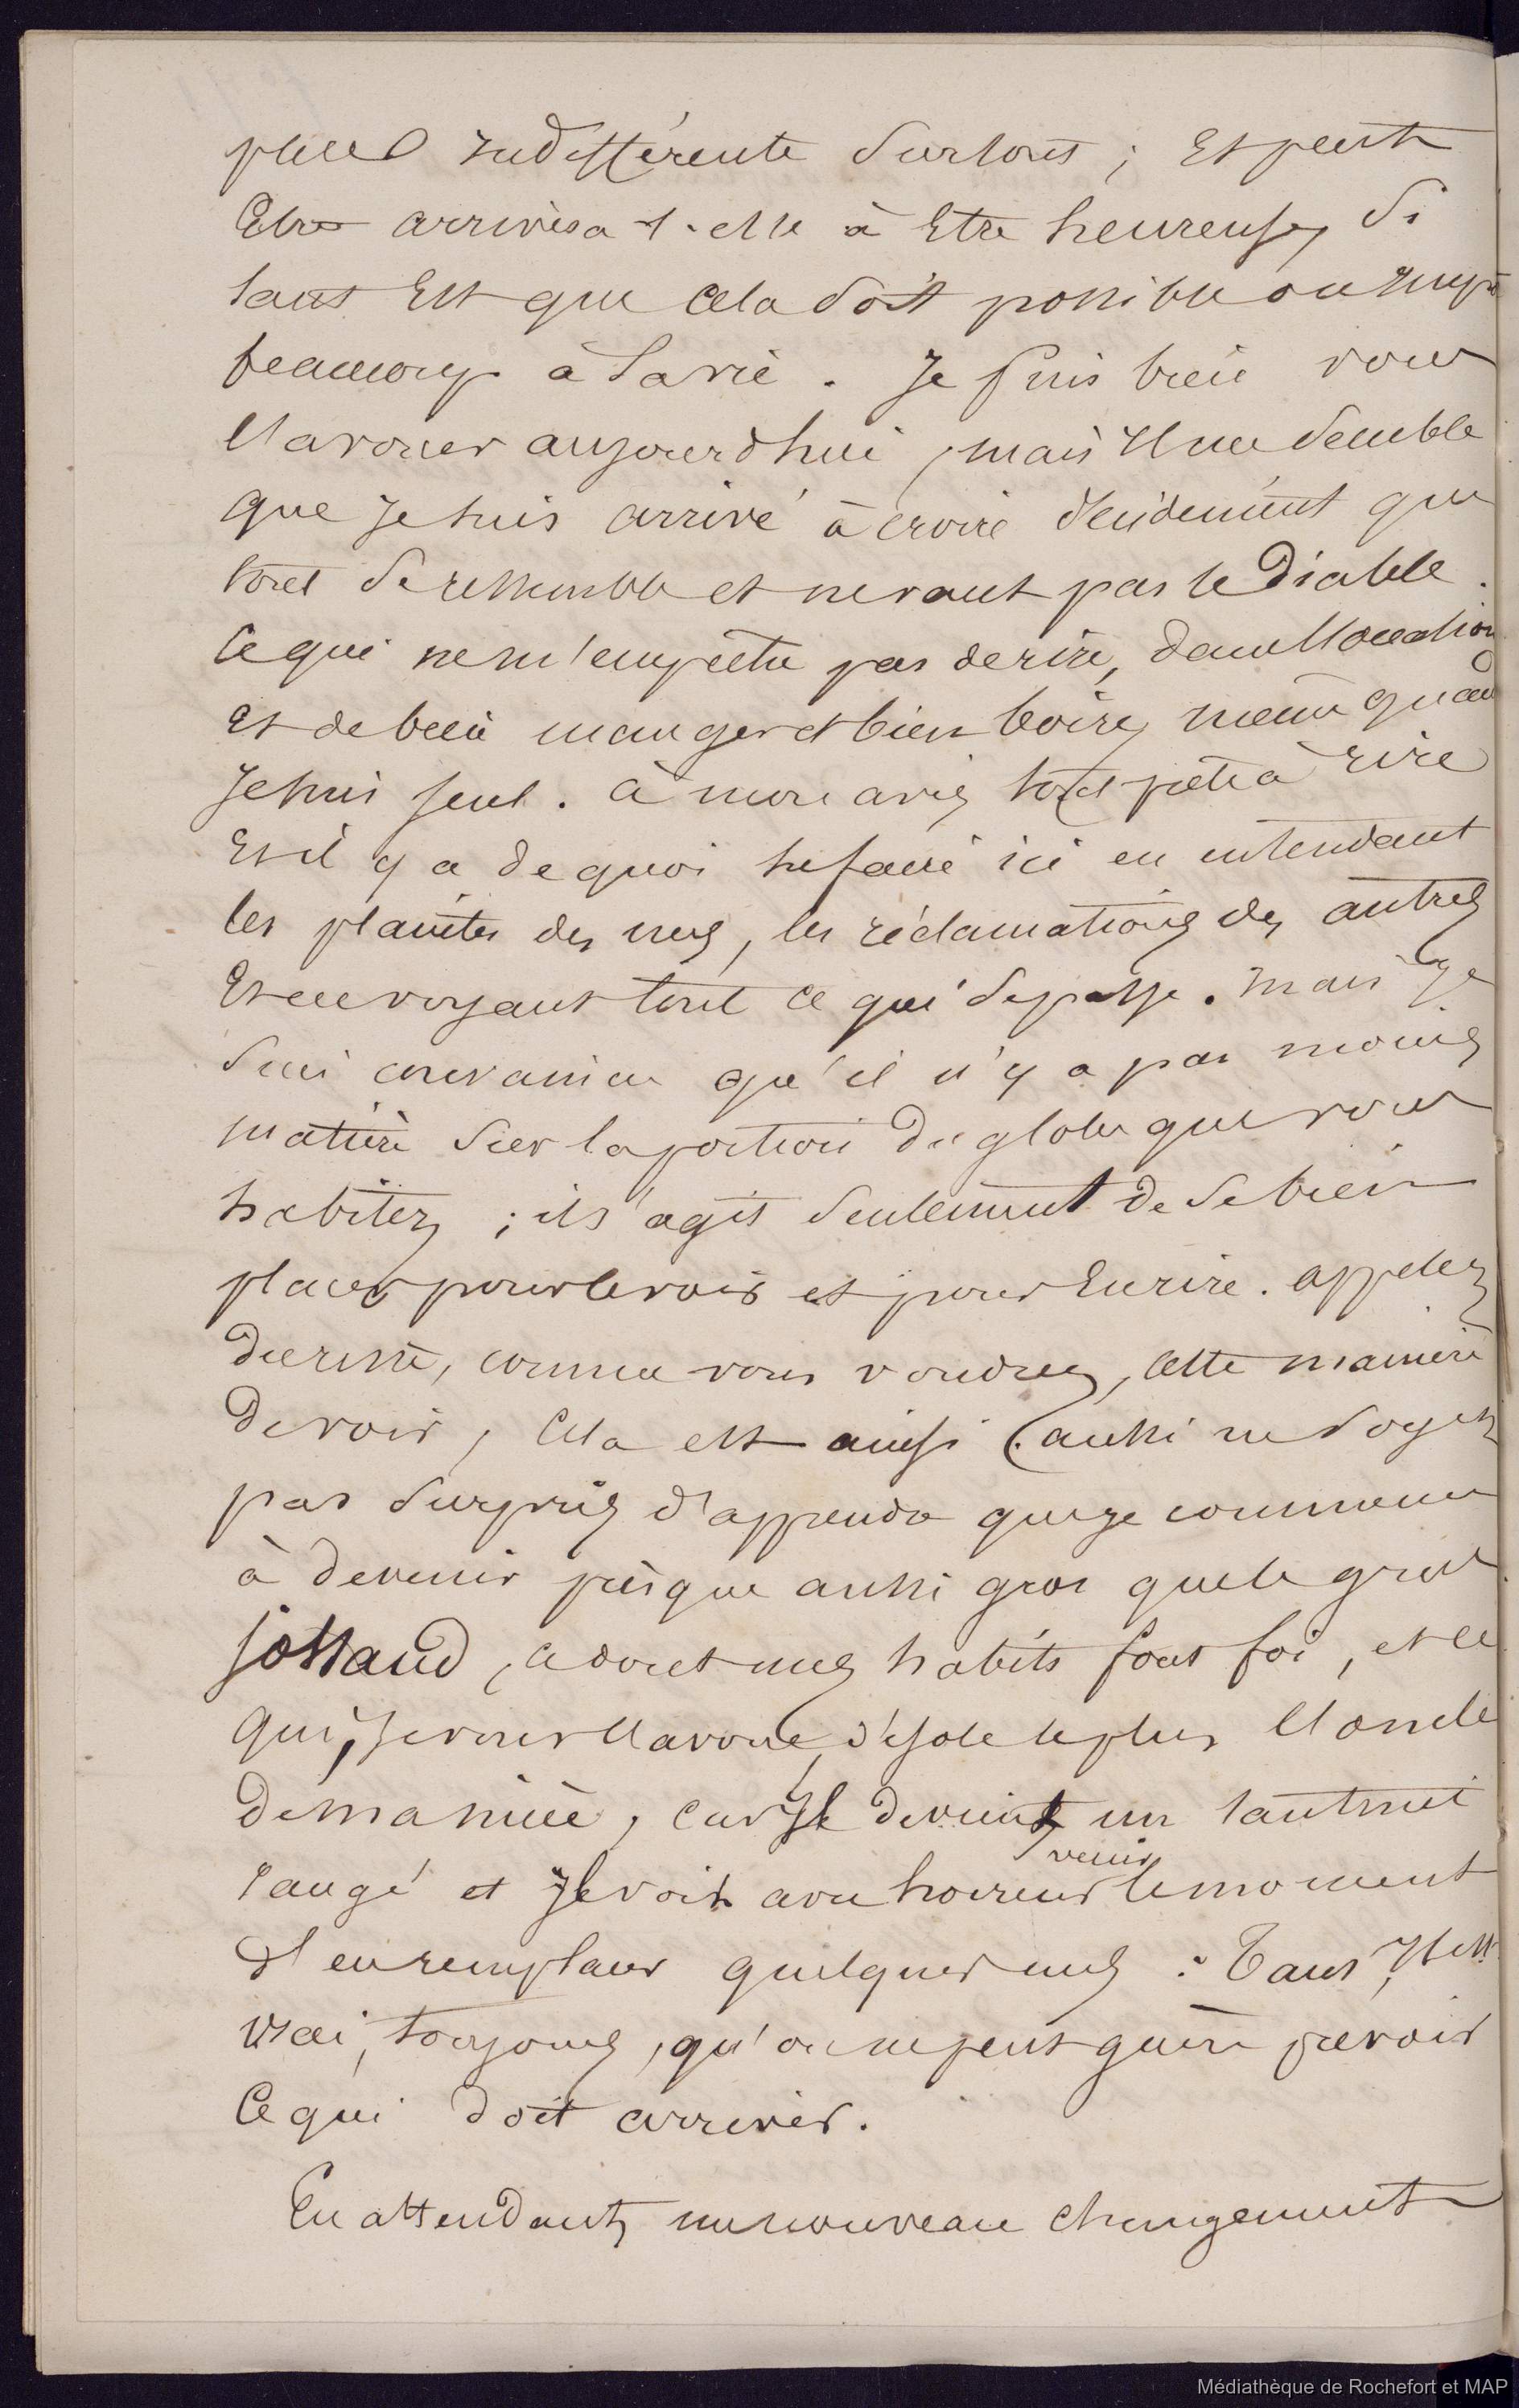 plus indifférente surtout ; Et peut
Etre arrivera-t-elle à Etre heureuse, Si
tant Est que Cela Soit possible ou
beaucoup à la vie. Je puis bien vous
l'avouer aujourd'hui, mais Il me Semble
que Je suis arrivé à croire décidément que
tout Se ressemble et ne vaut pas le Diable.
Ce qui ne m'empêche pas de rire, dans l'occasion
Et de bien manger et bien boire, même quand
Je suis seul. à mon avis, tout prête à rire
Et il y a de quoi le faire ici en entendant
les plaintes des uns, les réclamations des autres
Et en voyant tout ce qui Se passe. Mais Je
Suis convaincu qu'il n'y a pas moins
matière Sur la portion du globe que vous
habitez ; il s'agit Seulement de Se bien
placer pour le voir et pour En rire. appelez
comme vous voudrez, cette manière
De voir, Cela est ainsi (aussi ne Soyez
pas Surpris d'apprendre que je commence
à devenir presque aussi gros que le gros
jottand, ce dont mes habits font foi, et ce
qui, Je vous l'avoue, désole le plus l'oncle
De manière, car Il devient un tantinet
rangé et Il voit avec horreur venir le moment
d'en remplacer quelques uns : Tant Il est
vrai, toujours, qu'on ne peut guère prévoir
Ce qui doit arriver.
En attendant, un nouveau changement
Médiathèque de Rochefort et MAP